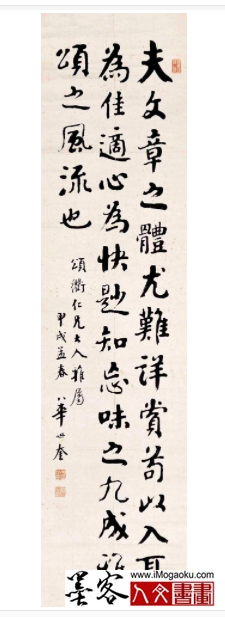 夫文章之體尤難詳賞苟以入耳
為佳適心為快尟知忘味之九成
頌之風流也
頌衢仁兄大人雅屬
甲戌孟春
華世奎
www.iMogaoku.com
墨客
人文書畫